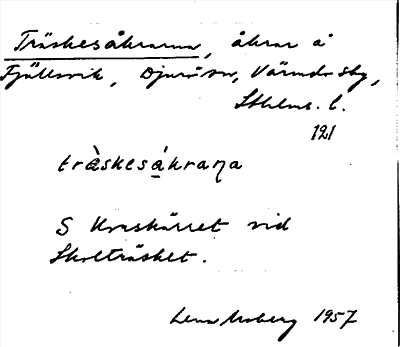 Träskesåkrarna, åkrar å
Fjällsvik, Djurö sn, Värmdö sbg,
Sthlms. l.
121
träskesåkraɳa
S Kraskärret vid
Skolträsket.
Lena Moberg 1957